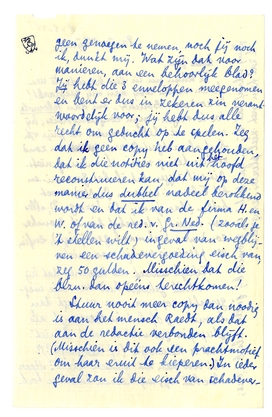 geen genoegen te nemen, noch jij noch
ik, dunkt mij. Wat zijn dat voor
manieren, aan een behoorlijk blad?
Jij hebt die 3 enveloppen meegenomen
en bent er dus in zekeren zin verant-
woordelijk voor; jij hebt dus alle
recht om geducht op te spelen. Zeg
dat ik geen copy heb aangehouden,
dat ik die notities niet uit het hoofd
reconstrueren kan, dat mij op deze
manier dus dubbel nadeel berokkend
wordt en dat ik van de firma H. en
W. of van de red. v. Gr. Ned. (zooals je
't stellen wilt) ingeval van wegblij-
ven een schadevergoeding eisch van
zeg 50 gulden. Misschien dat die
blzn. dan opeens terechtkomen!
Stuur nooit meer copy dan noodig
is aan het mensch Raedt, als dat
aan de redactie verbonden blijft.
(Misschien is dit ook een prachtmotief
om haar eruit te kieperen.) In ieder
geval zou ik die eisch van schadever-